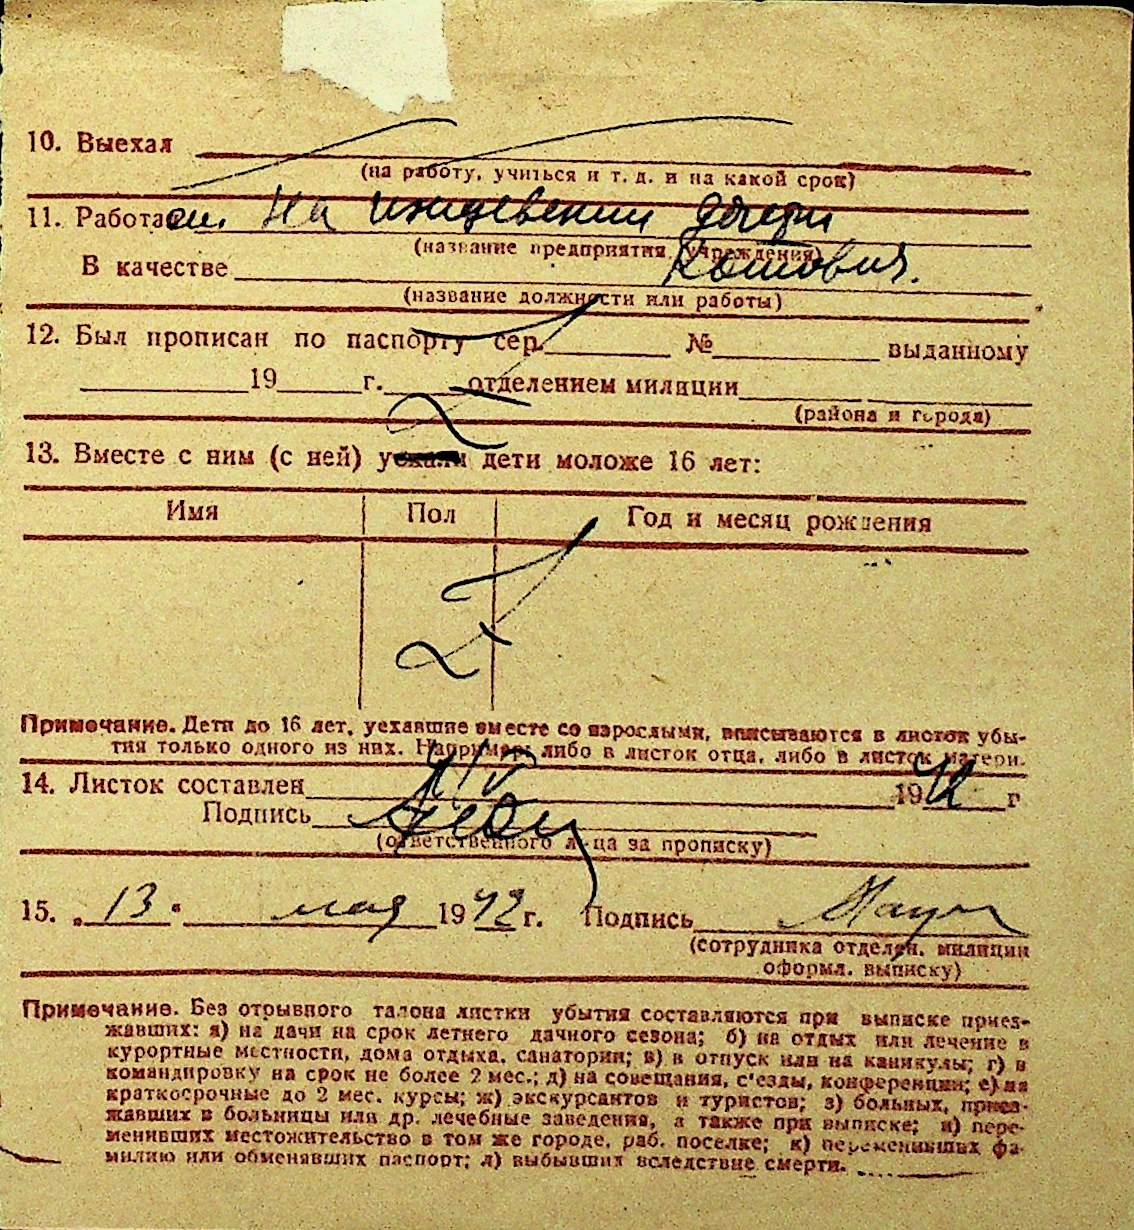 10. Выехал
(на работу, учиться и т. д. и на какой срок)
11. Работает на иждевении дочери
(название предприятия, учреждения)
Котович.
В качестве
(название должности или работы)
12. Был прописан по паспорту сер. № выданному
19 г. отделением милиции
(района и города)
13. Вместе с ним (с ней) уехали дети моложе 16 лет:
Имя Пол Год и месяц рождения
Примечание. Дети до 16 лет, уехавшие вместе со взрослыми, вписываются в листок убы-
тия только одного из них. Например: либо в листок отца, либо в листок матери.
14. Листок составлен 1942 г
Подпись
(ответственного лица за прописку)
15. „13" мая 1942 г. Подпись
(сотрудника отделен. милиции
оформл. выписку)
Примечание. Без отрывного талона листки убытия составляются при выписке приез-
жавших: а) на дачи на срок летнего дачного сезона; б) на отдых или лечение в
курортные местности, дома отдыха, санатории; в) в отпуск или на каникулы; г) в
командировку на срок не более 2 мес.; д) на совещания, с'езды, конференции; е) на
краткосрочные до 2 мес. курсы; ж) экскурсантов и туристов; з) больных, приез-
жавших в больницы или др. лечебные заведения, а также при выписке; и) пере-
менивших местожительство в том же городе, раб. поселке; к) переменивших фа-
милию или обменявших паспорт; л) выбывших вследствие смерти.